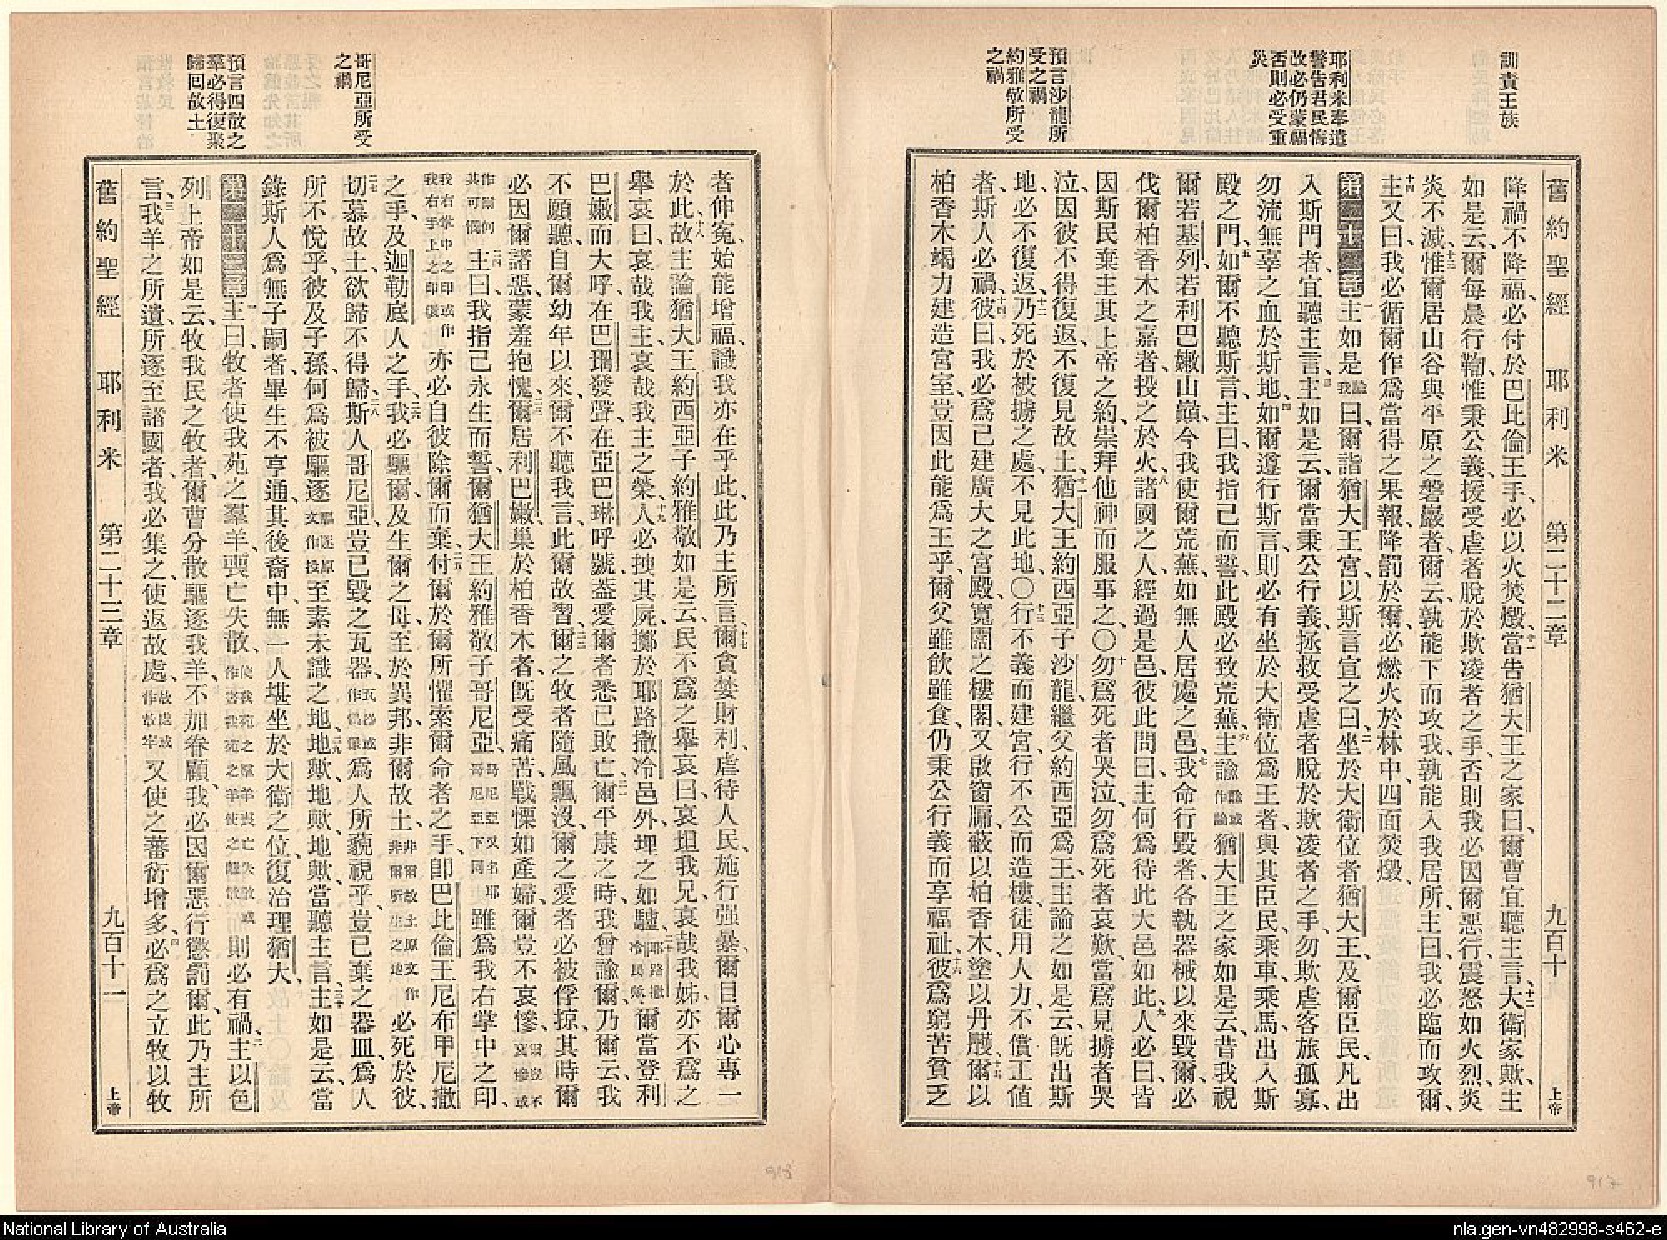 訓責王族
耶利米奉遣
警告君民悔
改必仍蒙福
否則必受重
災
預言沙龍所
受之禍
約雅敬所受
之禍
舊約聖經 耶利米 第二十二章 九百十 上帝
降禍不降福、必付於巴比倫王手、必以火焚燬、十一當告猶大王之家曰、爾曹宜聽主言、十二大衛家歟、主
如是云、爾每晨行鞫、惟秉公義、援受虐者脫於欺凌者之手、否則我必因爾惡行、震怒如火烈炎
炎不滅、十三惟爾居山谷與平原之磐巖者、爾云、孰能下而攻我、孰能入我居所、主曰、我必臨而攻爾、
十四主又曰、我必循爾作爲當得之果報、降罰於爾、必燃火於林中、四面焚燬、
第二十二章 一主如是諭我曰、爾詣猶大王宮、以斯言宣之曰、二坐於大衛位者猶大王、及爾臣民、凡出
入斯門者、宜聽主言、三主如是云、爾當秉公行義、拯救受虐者脫於欺凌者之手、勿欺虐客旅孤寡、
勿流無辜之血於斯地、四如爾遵行斯言、則必有坐於大衛位爲王者、與其臣民、乘車乘馬、出入斯
殿之門、五如爾不聽斯言、主曰、我指己而誓、此殿必致荒蕪、六主諭諭或作論猶大王之家如是云、昔我視
爾若基列、若利巴嫩山巔、今我使爾荒蕪、如無人居處之邑、七我命行毀者、各執器械以來毀爾、必
伐爾柏香木之嘉者、投之於火、八諸國之人、經過是邑、彼此問曰、主何爲待此大邑如此、九人必曰、皆
因斯民棄主其上帝之約、崇拜他神而服事之、〇十勿爲死者哭泣、勿爲死者哀歎、當爲見擄者哭
泣、因彼不得復返、不復見故土、十一猶大王約西亞子沙龍、繼父約西亞爲王、主論之如是云、旣出斯
地、必不復返、十二乃死於被擄之處、不見此地、〇十三行不義而建宮、行不公而造樓、徒用人力、不償工值
者、斯人必禍、彼曰、我必爲己建廣大之宮殿、寬闊之樓閣、又啟窗牖、蔽以柏香木、塗以丹雘、十四爾以
柏香木竭力建造宮室、豈因此能爲王乎、爾父雖飲雖食、仍秉公行義而享福祉、十六彼爲窮苦貧乏
哥尼亞所受
之禍
預言四散之
羣必得復聚
歸回故土
者伸冤、始能增福、識我亦在乎此、此乃主所言、十七爾貪婪財利、虐待人民、施行强暴、爾目爾心專一
於此、十八故主論猶大王約西亞子約雅敬如是云、民不爲之舉哀曰、哀哉我兄、哀哉我姊、亦不爲之
舉哀曰、哀哉我主、哀哉我主之榮、十九人必拽其屍、擲於耶路撒冷邑外、埋之如驢、二十耶路撒冷民歟、爾當登利
巴嫩而大呼、在巴珊發聲、在亞巴琳呼號、蓋愛爾者悉已敗亡、二一爾平康之時、我曾諭爾、乃爾云、我
不願聽、自爾幼年以來、爾不聽我言、此爾故習、二二爾之牧者隨風飄沒、爾之愛者必被俘掠、其時爾
必因爾諸惡、蒙羞抱愧、二三爾居利巴嫩、巢於柏香木者、旣受痛苦戰慄如產婦、爾豈不哀慘、爾豈不哀慘或
作爾何其可憫 二四主曰、我指己永生而誓、爾猶大王約雅敬子哥尼亞、哥尼亞又名耶哥尼亞下同雖爲我右掌中之印、
我右掌中之印或作我右手上之印環 亦必自彼除爾而棄、二五付爾於爾所懼索爾命者之手、卽巴比倫王尼布甲尼撒
之手、及迦勒底人之手、二六我必驅爾及生爾之母、至於異邦、非爾故土、非爾故土原文作非爾所生之地必死於彼、
二七切慕故土、欲歸不得歸、二八斯人哥尼亞豈已毀之瓦器、瓦器或作偶像爲人所藐視乎、豈已棄之器皿、爲人
所不悅乎、彼及子孫、何爲被驅逐、驅逐原文作投至素未識之地、二九地歟、地歟、地歟、當聽主言、三十主如是云、當
錄斯人爲無子嗣者、畢生不亨通、其後裔中、無一人堪坐於大衛之位、復治理猶大、
第二十三章 一主曰、牧者使我苑之羣羊喪亡失散、使我苑之羣羊喪亡失散或作害我苑之羊使之離散則必有禍、二主以色
列上帝如是云、牧我民之牧者、爾曹分散驅逐我羊、不加眷顧、我必因爾惡行懲罰爾、此乃主所
言、三我羊之所遺、所逐至諸國者、我必集之、使返故處、故處或作故牢又使之蕃衍增多、四必爲之立牧以牧
舊約聖經 耶利米 第二十三章 九百十一 上帝
918
917
National Library of Australia
nla.gen-vn482998-s462-e